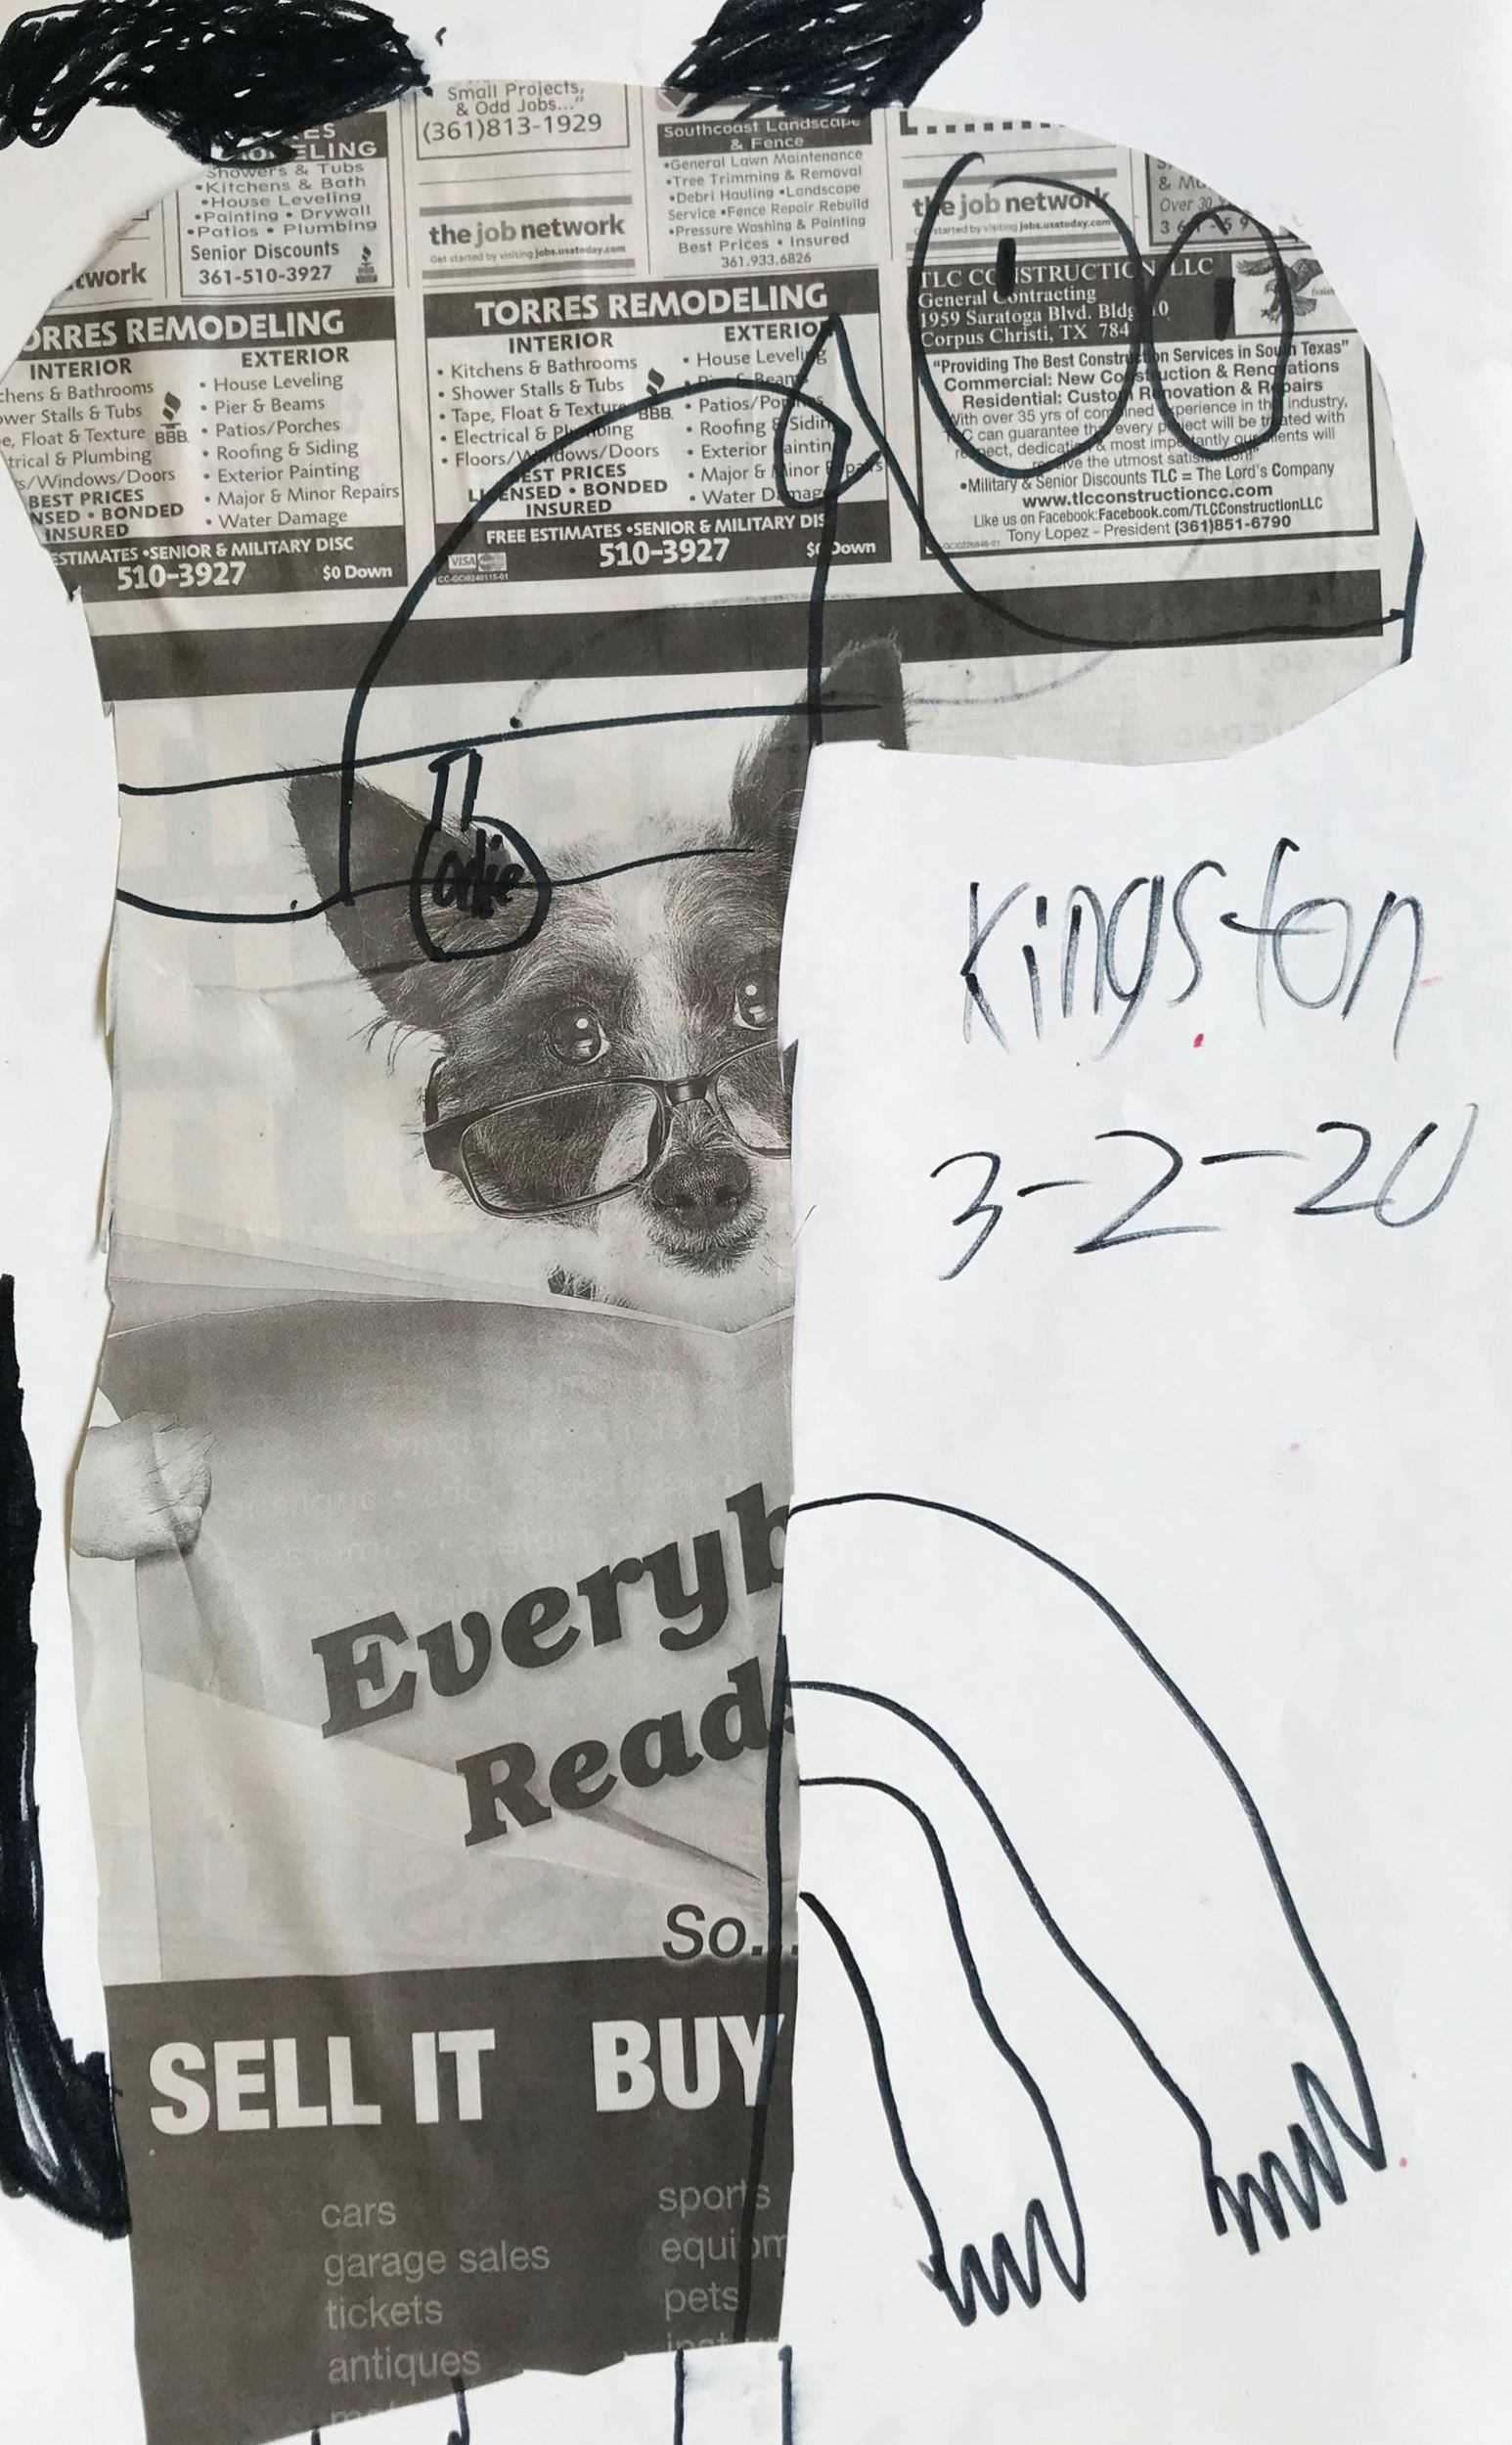 Small Projects,
& Odd Jobs..."
(361)813-1929
ELING
Showers & Tubs
•Kitchens & Bath
•House Leveling
•Painting • Drywall
•Patios • Plumbing
Senior Discounts
361-510-3927
the job network
Get started by visiting jobs.usatoday.com
Southcoast Landscape
& Fence
•General Lawn Maintenance
•Tree Trimming & Removal
•Debri Hauling •Landscape
Service •Fence Repair Rebuild
•Pressure Washing & Painting
Best Prices • Insured
361.933.6826
the job network
started by visiting jobs.usatoday.com
Over 30
twork
ORRES REMODELING
INTERIOR
chens & Bathrooms
ower Stalls & Tubs
e, Float & Texture
trical & Plumbing
s/Windows/Doors
BEST PRICES
NSED • BONDED
INSURED
BBB
EXTERIOR
• House Leveling
• Pier & Beams
• Patios/Porches
• Roofing & Siding
• Exterior Painting
• Major & Minor Repairs
• Water Damage
ESTIMATES •SENIOR & MILITARY DISC
510-3927
$0 Down
TORRES REMODELING
INTERIOR
• Kitchens & Bathrooms
• Shower Stalls & Tubs
• Tape, Float & Texture
• Electrical & Plumbing
• Floors/Windows/Doors
BEST PRICES
LICENSED • BONDED
INSURED
BBB
EXTERIO
• House Leveling
• Pier & Beams
• Patios/Porches
• Roofing & Siding
• Exterior Painting
• Major & Minor Repairs
• Water Damage
FREE ESTIMATES •SENIOR & MILITARY DIS
510-3927
$0 Down
VISA
CC-GCI0240115-01
TLC CONSTRUCTION LLC
General Contracting
1959 Saratoga Blvd. Bldg 10
Corpus Christi, TX 784
"Providing The Best Construction Services in South Texas"
Commercial: New Construction & Renovations
Residential: Custom Renovation & Repairs
With over 35 yrs of combined experience in the industry,
TLC can guarantee that every project will be treated with
respect, dedication & most importantly our clients will
receive the utmost satisfaction!"
•Military & Senior Discounts TLC = The Lord's Company
www.tlcconstructioncc.com
Like us on Facebook:Facebook.com/TLCConstructionLLC
Tony Lopez - President (361)851-6790
odie
Kingston
3-2-20
Everyb
Reads
So...
SELL IT BUY
cars
garage sales
tickets
antiques
sports
equipm
pets